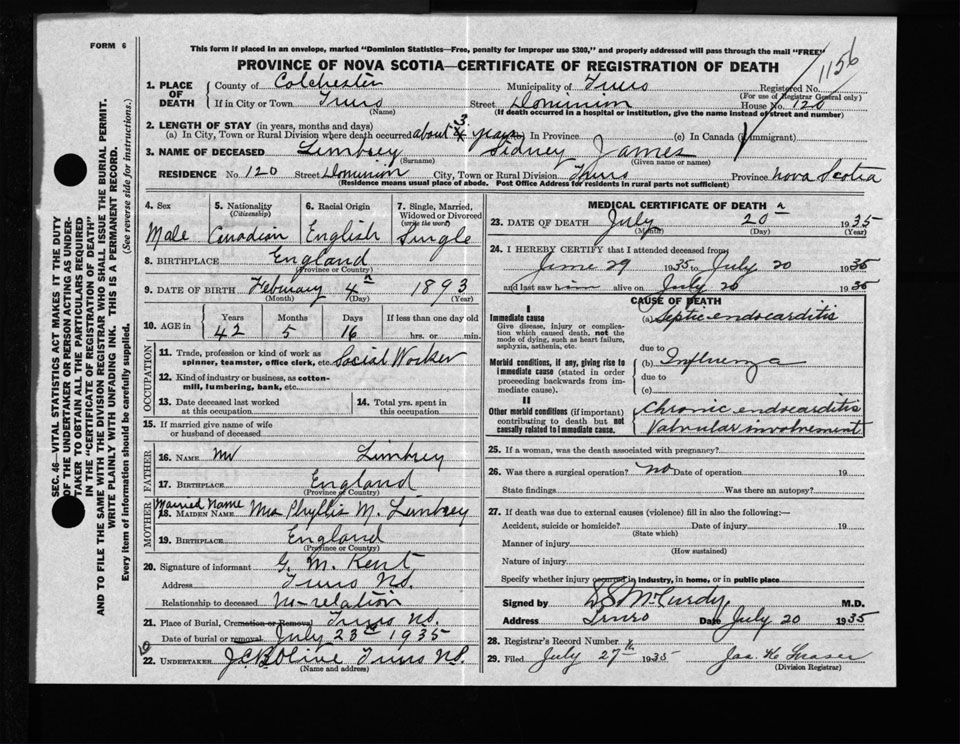 FORM 6
This form if placed in an envelope, marked "Dominion Statistics—Free, penalty for improper use $300," and properly addressed will pass through the mail "FREE"
PROVINCE OF NOVA SCOTIA—CERTIFICATE OF REGISTRATION OF DEATH
1156
1. PLACE OF DEATH
County of Colchester Municipality of Truro Registered No.
(For use of Registrar General only)
If in City or Town Truro Street Dominion House No. 120
(Name) (If death occurred in a hospital or institution, give the name instead of street and number)
2. LENGTH OF STAY (in years, months and days)
(a) In City, Town or Rural Division where death occurred about 3 years (b) In Province (c) In Canada (if immigrant)
3. NAME OF DECEASED Limbrey Sidney James
(Surname) (Given name or names)
RESIDENCE No. 120 Street Dominion City, Town or Rural Division Truro Province Nova Scotia
(Residence means usual place of abode. Post Office Address for residents in rural parts not sufficient)
4. Sex 5. Nationality (Citizenship) 6. Racial Origin 7. Single, Married, Widowed or Divorced (write the word)
Male Canadian English Single
8. BIRTHPLACE England
(Province or Country)
9. DATE OF BIRTH February 4th 1893
(Month) (Day) (Year)
10. AGE in Years Months Days If less than one day old
42 5 16 hrs. or min.
OCCUPATION
11. Trade, profession or kind of work as spinner, teamster, office clerk, etc. Social Worker
12. Kind of industry or business, as cotton-mill, lumbering, bank, etc.
13. Date deceased last worked at this occupation
14. Total yrs. spent in this occupation
15. If married give name of wife or husband of deceased
FATHER
16. NAME Mr Limbrey
17. BIRTHPLACE England
(Province or Country)
MOTHER
Married Name
18. MAIDEN NAME Mrs Phyllis M. Limbrey
19. BIRTHPLACE England
(Province or Country)
20. Signature of informant G. M. Kent
Address Truro N.S.
Relationship to deceased No-relation
21. Place of Burial, Cremation or Removal Truro N.S.
Date of burial or removal July 23rd 1935
22. UNDERTAKER Truro N.S.
(Name and address)
MEDICAL CERTIFICATE OF DEATH
23. DATE OF DEATH July 20 1935
(Month) (Day) (Year)
24. I HEREBY CERTIFY that I attended deceased from
June 29 1935 to July 20 1935
and last saw him alive on July 20 1935
CAUSE OF DEATH
I
Immediate cause
Give disease, injury or complication which caused death, not the mode of dying, such as heart failure, asphyxia, asthenia, etc.
(a) Septic endocarditis
due to
Morbid conditions, if any, giving rise to immediate cause (stated in order proceeding backwards from immediate cause).
(b) Influenza
due to
(c)
II
Other morbid conditions (if important) contributing to death but not causally related to immediate cause.
Chronic endocarditis
Valvular involvement
25. If a woman, was the death associated with pregnancy?
26. Was there a surgical operation? No Date of operation 19
State findings Was there an autopsy?
27. If death was due to external causes (violence) fill in also the following:—
Accident, suicide or homicide? Date of injury 19
(State which)
Manner of injury
(How sustained)
Nature of injury
Specify whether injury occurred in industry, in home, or in public place
Signed by McCurdy M.D.
Address Truro Date July 20 1935
28. Registrar's Record Number
29. Filed July 27th 1935 Jas. H. Fraser
(Division Registrar)
SEC. 46—VITAL STATISTICS ACT MAKES IT THE DUTY
OF THE UNDERTAKER OR PERSON ACTING AS UNDER-
TAKER TO OBTAIN ALL THE PARTICULARS REQUIRED
IN THE "CERTIFICATE OF REGISTRATION OF DEATH"
AND TO FILE THE SAME WITH THE DIVISION REGISTRAR WHO SHALL ISSUE THE BURIAL PERMIT.
WRITE PLAINLY WITH UNFADING INK. THIS IS A PERMANENT RECORD.
Every item of information should be carefully supplied. (See reverse side for instructions.)